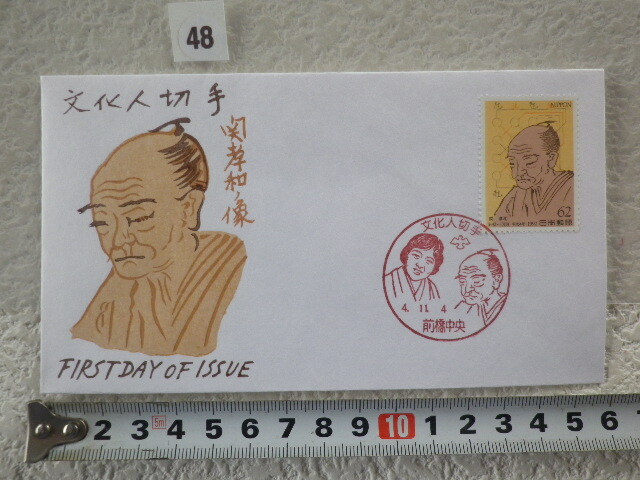 48
文化人切手
関孝和像
NIPPON
62
日本郵便
文化人切手
4.11.4
前橋中央
FIRST DAY OF ISSUE
2 3 5m 4 5 6 7 8 9 10 1 2 3 4 5 6